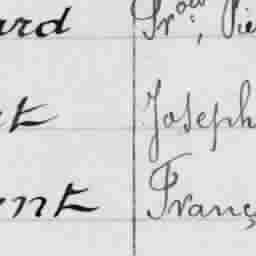 ard Frois, Pie
t Joseph
ent Franç